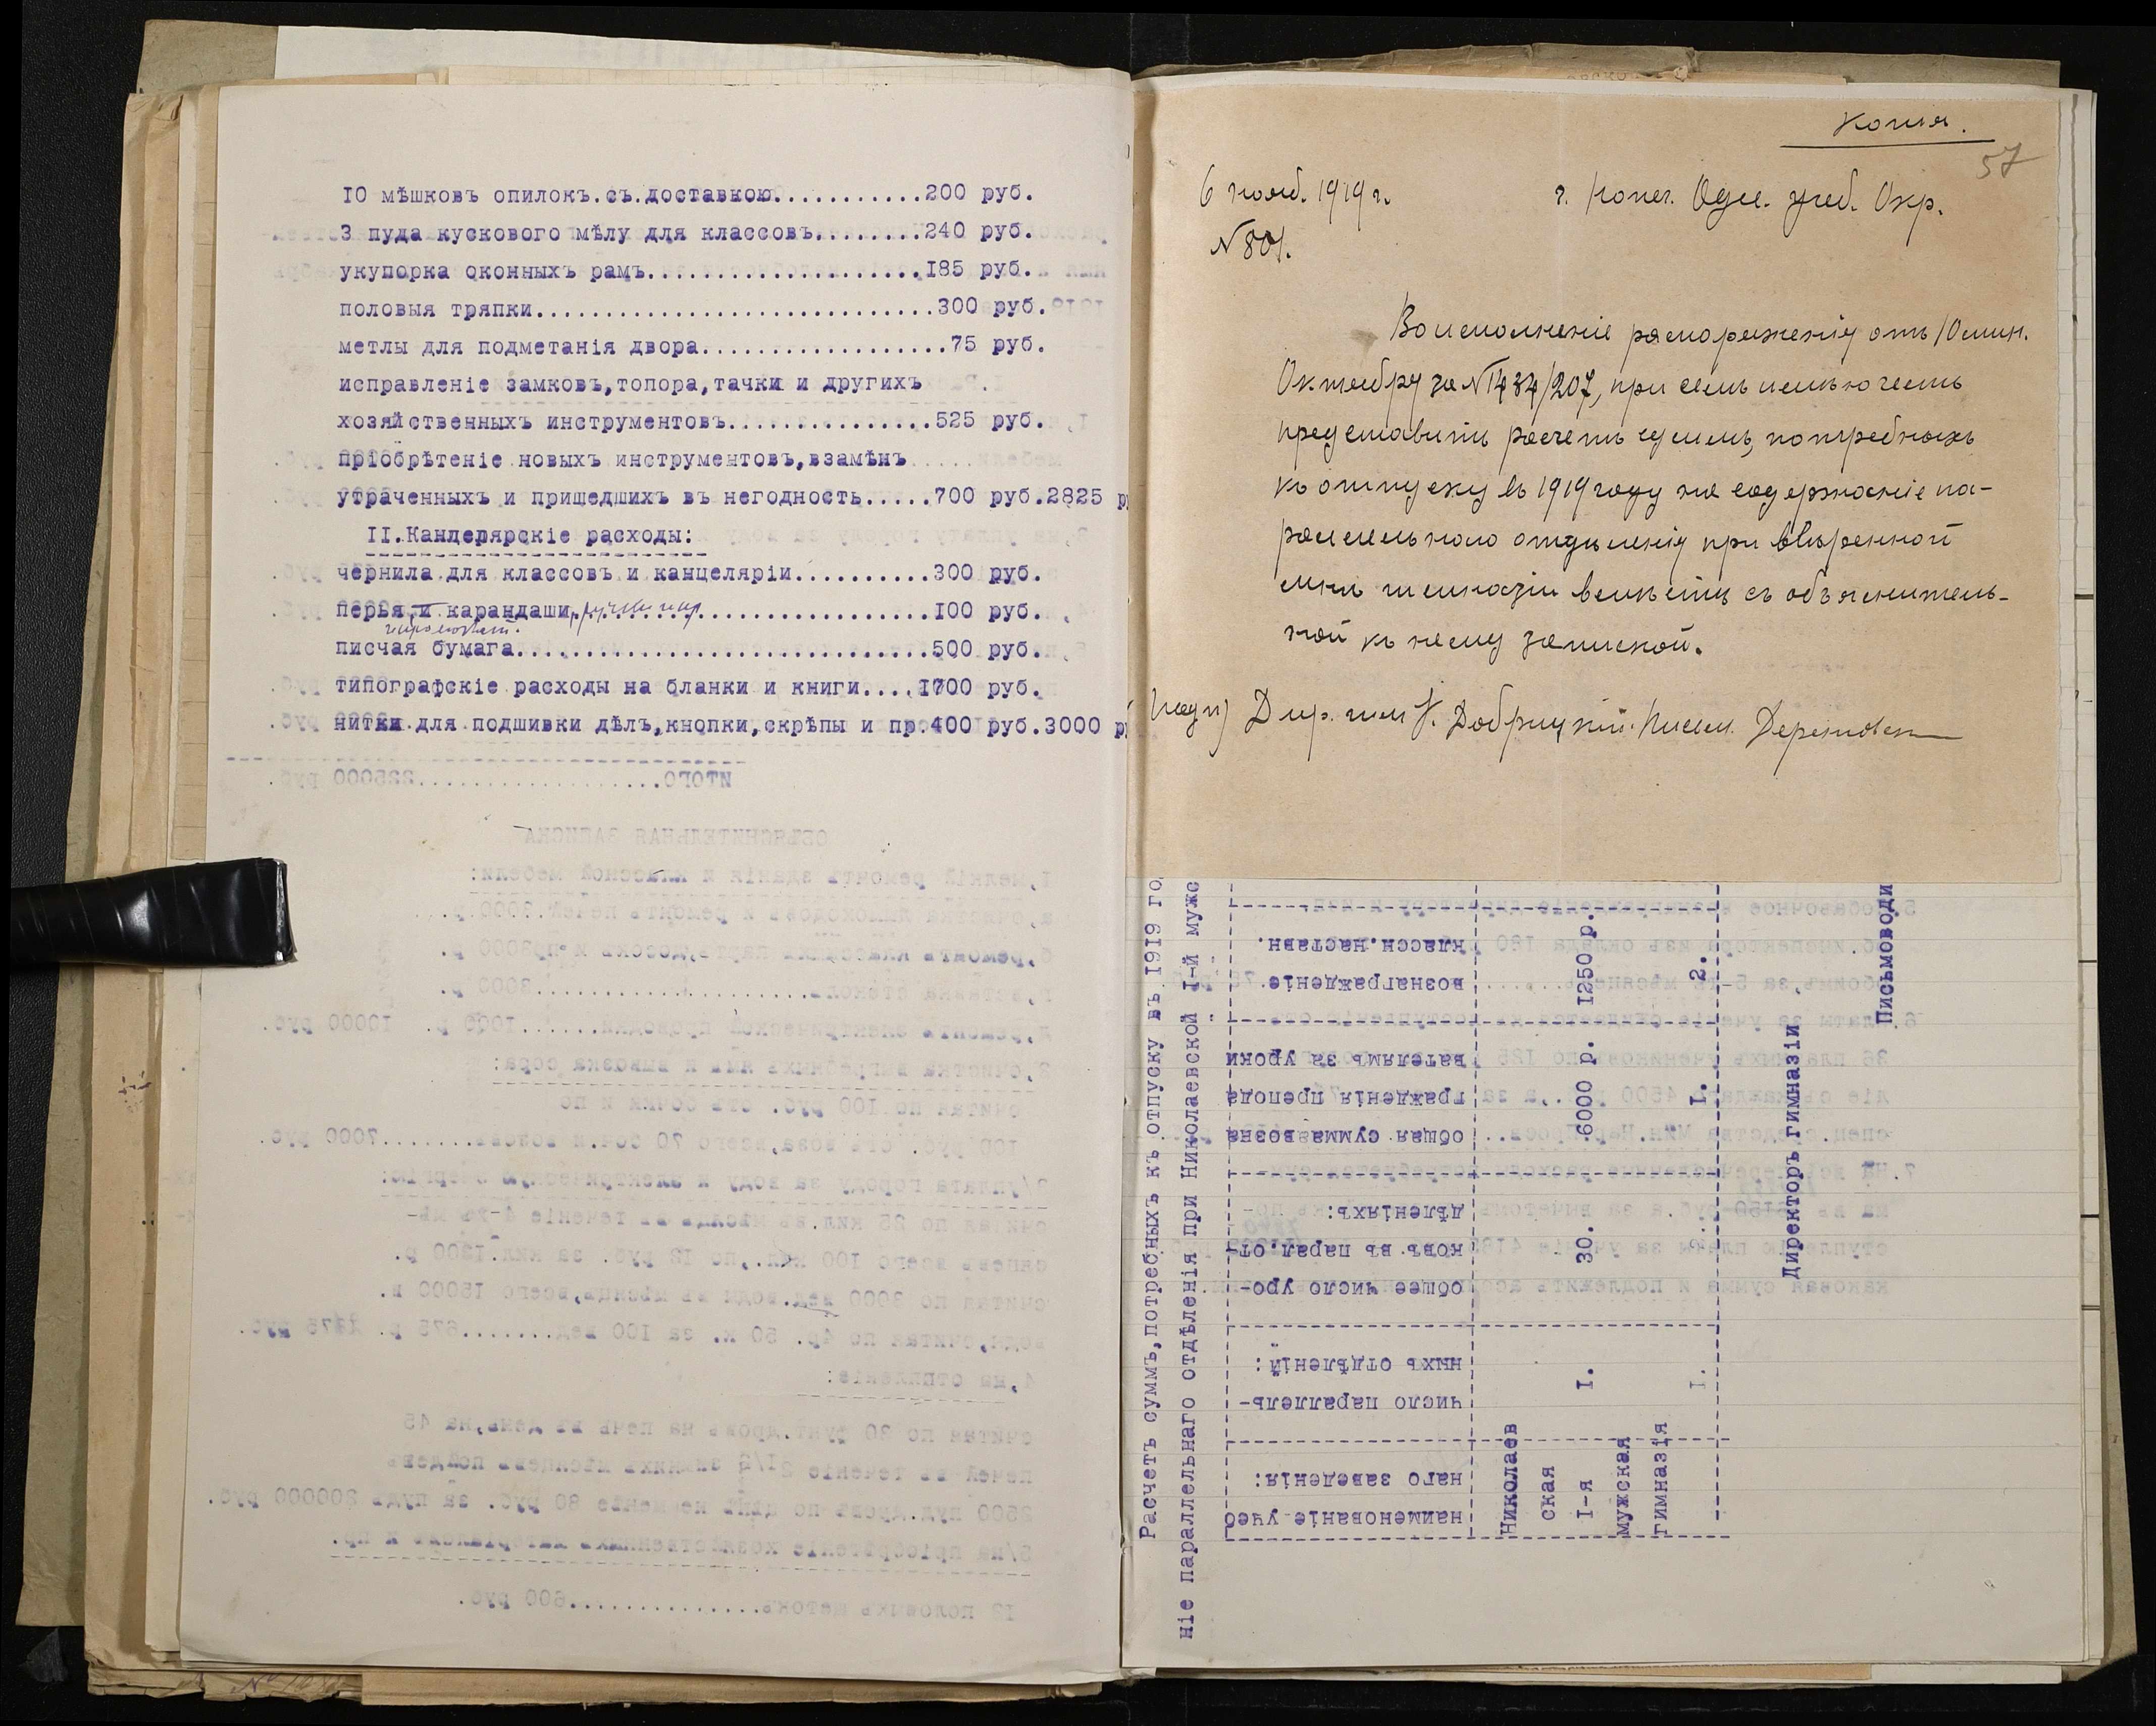 10 мѣшковъ опилокъ.съ.доставкою...........200 руб.
3 пуда кускового мѣлу для классовъ........240 руб.
укупорка оконныхъ рамъ....................185 руб.
половыя тряпки.............................300 руб.
метлы для подметанія двора..................75 руб.
исправленіе замковъ,топора,тачки и другихъ
хозяйственныхъ инструментовъ...............525 руб.
пріобрѣтеніе новыхъ инструментовъ,взамѣнъ
утраченныхъ и пришедшихъ въ негодность.....700 руб.2825 р
II.Канцелярскіе расходы:
чернила для классовъ и канцеляріи..........300 руб.
перья и карандаши..................100 руб.
писчая бумага..............................500 руб.
типографскіе расходы на бланки и книги....1700 руб.
нитки для подшивки дѣлъ,кнопки,скрѣпы и пр.400 руб.3000 р
Копія.
57
6 нояб. 1919 г.
г. Попеч. Одес. учеб. Окр.
№ 801.
Во исполненіе распоряженія отъ 10 мин.
Октября за № 1434/207, при семъ имѣю честь
представить расчетъ суммъ, потребныхъ
къ отпуску въ 1919 году на содержаніе па-
раллельнаго отдѣленія при ввѣренной
мнѣ гимназіи вмѣстѣ съ объяснитель-
ной къ нему запиской.
Подп) Дир. гим К. Добрицкій. Письм.
Расчетъ суммъ,потребныхъ къ отпуску въ 1919 го
ніе параллельнаго отдѣленія при Николаевской I-й мужс
наименованіе учеб
наго заведенія:
число параллель-
ныхъ отдѣленій:
общее число уро-
ковъ въ парал.от-
дѣленіяхъ:
общая сумма возна
гражденія препода
вателямъ за уроки
вознагражденіе
классн.наставн.
Николаев
ская
I-я
мужская
гимназія
I.
30.
6000 р.
1250 р.
I.
I.
2.
Директоръ гимназіи
Письмоводи